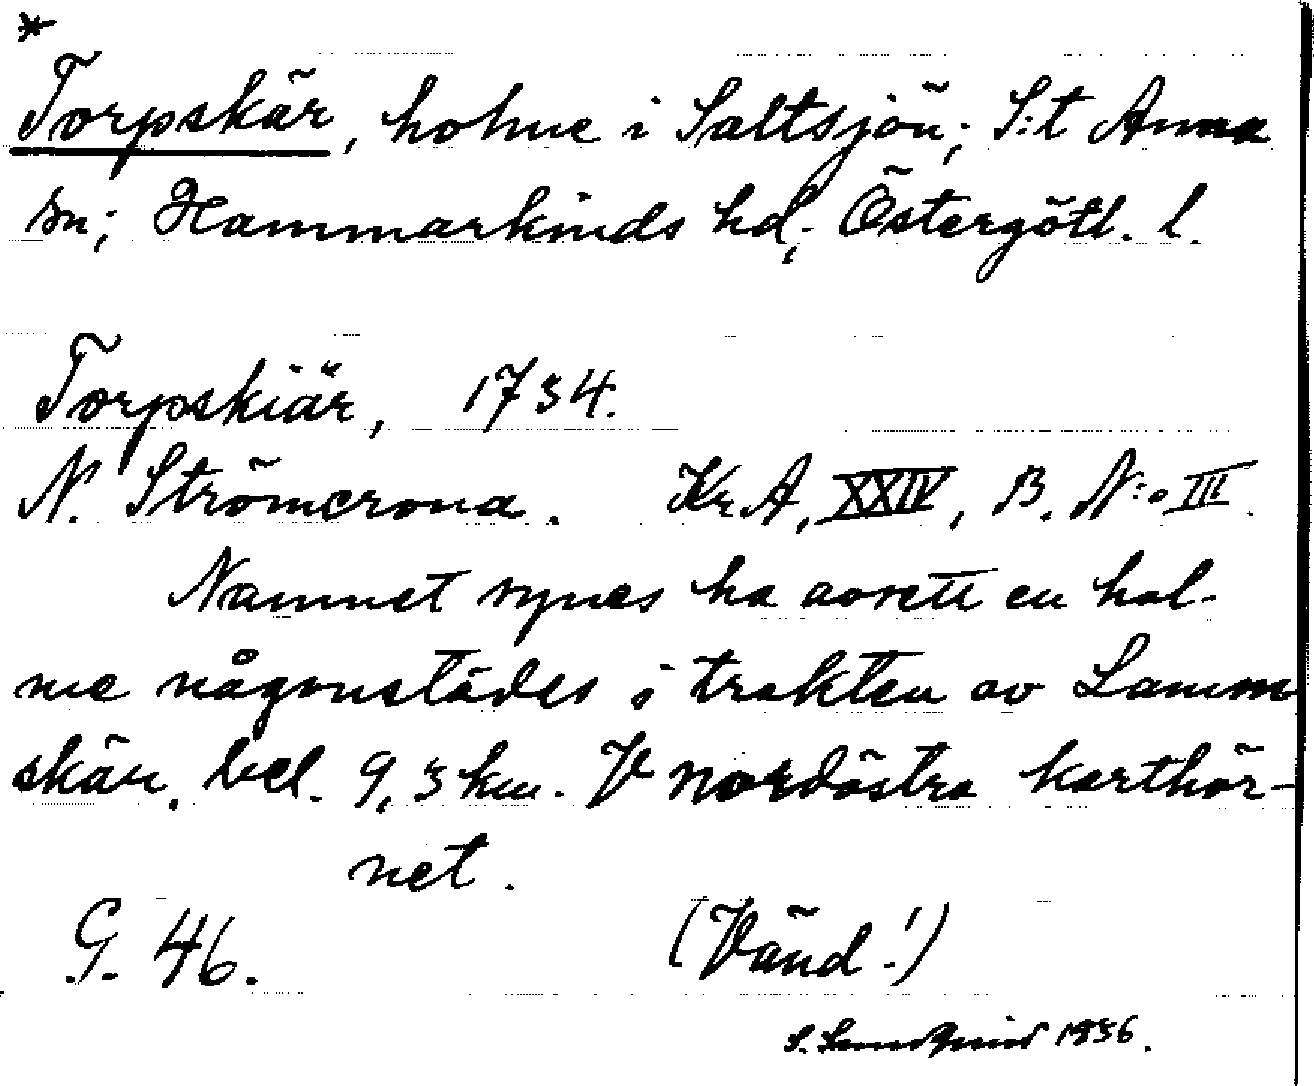 *
Torpskär, holme i Saltsjön; S:t Anna
sn; Hammarkinds hd; Östergötl. l.
Torpskiär, 1734.
N. Strömcrona. Kr. A, XXIV, B. N:o III.
Namnet synes ha avsett en hol-
me någonstädes i trakten av Lamm
skär, bel. 9,3 km. V nordöstra karthör-
net.
G. 46.
(Vänd!)
S. 1936.